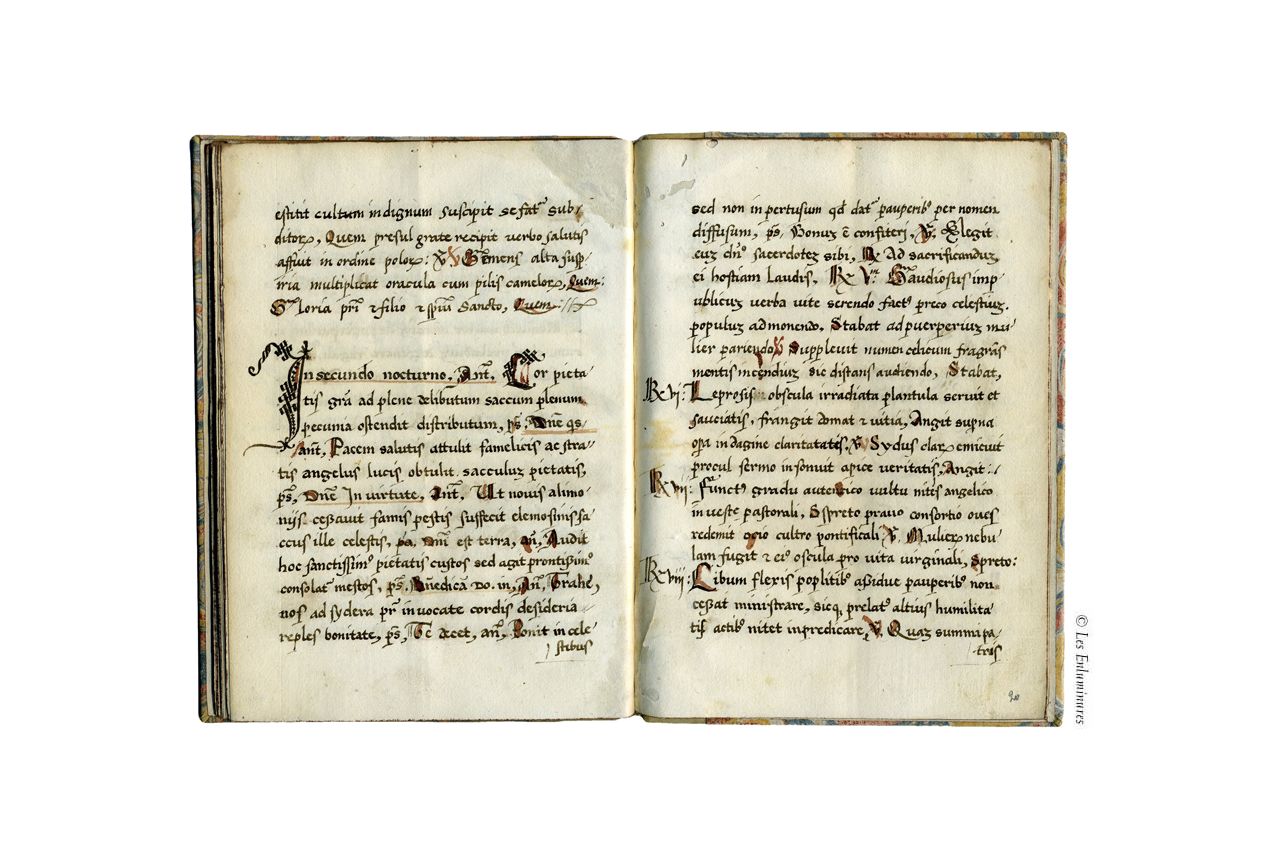 estitit cultum indignum suscipit se fat͞ sub-
ditoꝝ, Quem presul grate recipit verbo salutis
affuit in ordine poloꝝ: ℣ Gemens alta susp-
iria multiplicat oracula cum pilis cameloꝝ, Quem:
Gloria pr̄i & filio & sp̄ui Sancto, Quem:
In secundo nocturno, Ant̄. Cor pieta-
tis gr̄a ad plene delibutum saccum plenum
pecunia ostendit distributum, ps̄, Dn̄e qs
Ant̄, Pacem salutis attulit famelicis ac stra-
tis angelus lucis obtulit sacculuz pietatis,
ps̄, Dn̄e In virtute, Ant̄. Ut novis alimo-
niis cessavit famis pestis suffecit elemosinis sa-
ccus ille celestis, ps. Dn̄i est terra, an̄, Audit
hoc sanctissim⁹ pietatis custos sed agit prontissim⁹
consolat͞ mestos, ps̄, Bn̄edicā Do. in, An̄, Trahe,
nos ad sydera pr̄ invocate cordis desideria
reples bonitate, ps̄, Te decet, an̄, Ponit in cele-
stibus
sed non in pertusum qd̄ dat͞ pauperib⁹ per nomen
diffusum, ps̄, Bonus ē confiterj, ℣. Elegit
euz dn̄s sacerdotez sibi, ℟ Ad sacrificanduz
ei hostiam laudis, ℟ Vm̄ Gaudiosus imp-
ublicuz verba vite serendo fact⁹ preco celestiuz.
populuz admonendo, Stabat ad puerperiuz mu-
lier pariendo ℣ Supplevit numen celicum fragrās
mentis incendiuz sic distans audiendo, Stabat,
℟ vi: Leprosis obscula irradiata plantula servit et
sauciatis, frangit domat & vitia, Angit supna
opa indagine claritatatis, ℣ Sydus claꝝ emicuit
procul sermo insonuit apice veritatis, Angit:
℟ vij: Funct⁹ gradu autentico vultu nites angelico
in veste pastorali, Spreto pravo consortio oves
redemit ocio cultro pontificali ℣. Mulieꝝ nebu-
lam fugit & ei⁹ oscula pro vita virginali, Spreto:
℟ viij: Libum flexis poplitib⁹ assidue pauperib⁹ non
cessat ministrare, sicq, prelat⁹ altius humilita
tis actib⁹ nitet in predicare, ℣. Quaz summi pa-
tris
20
© Les Enluminures